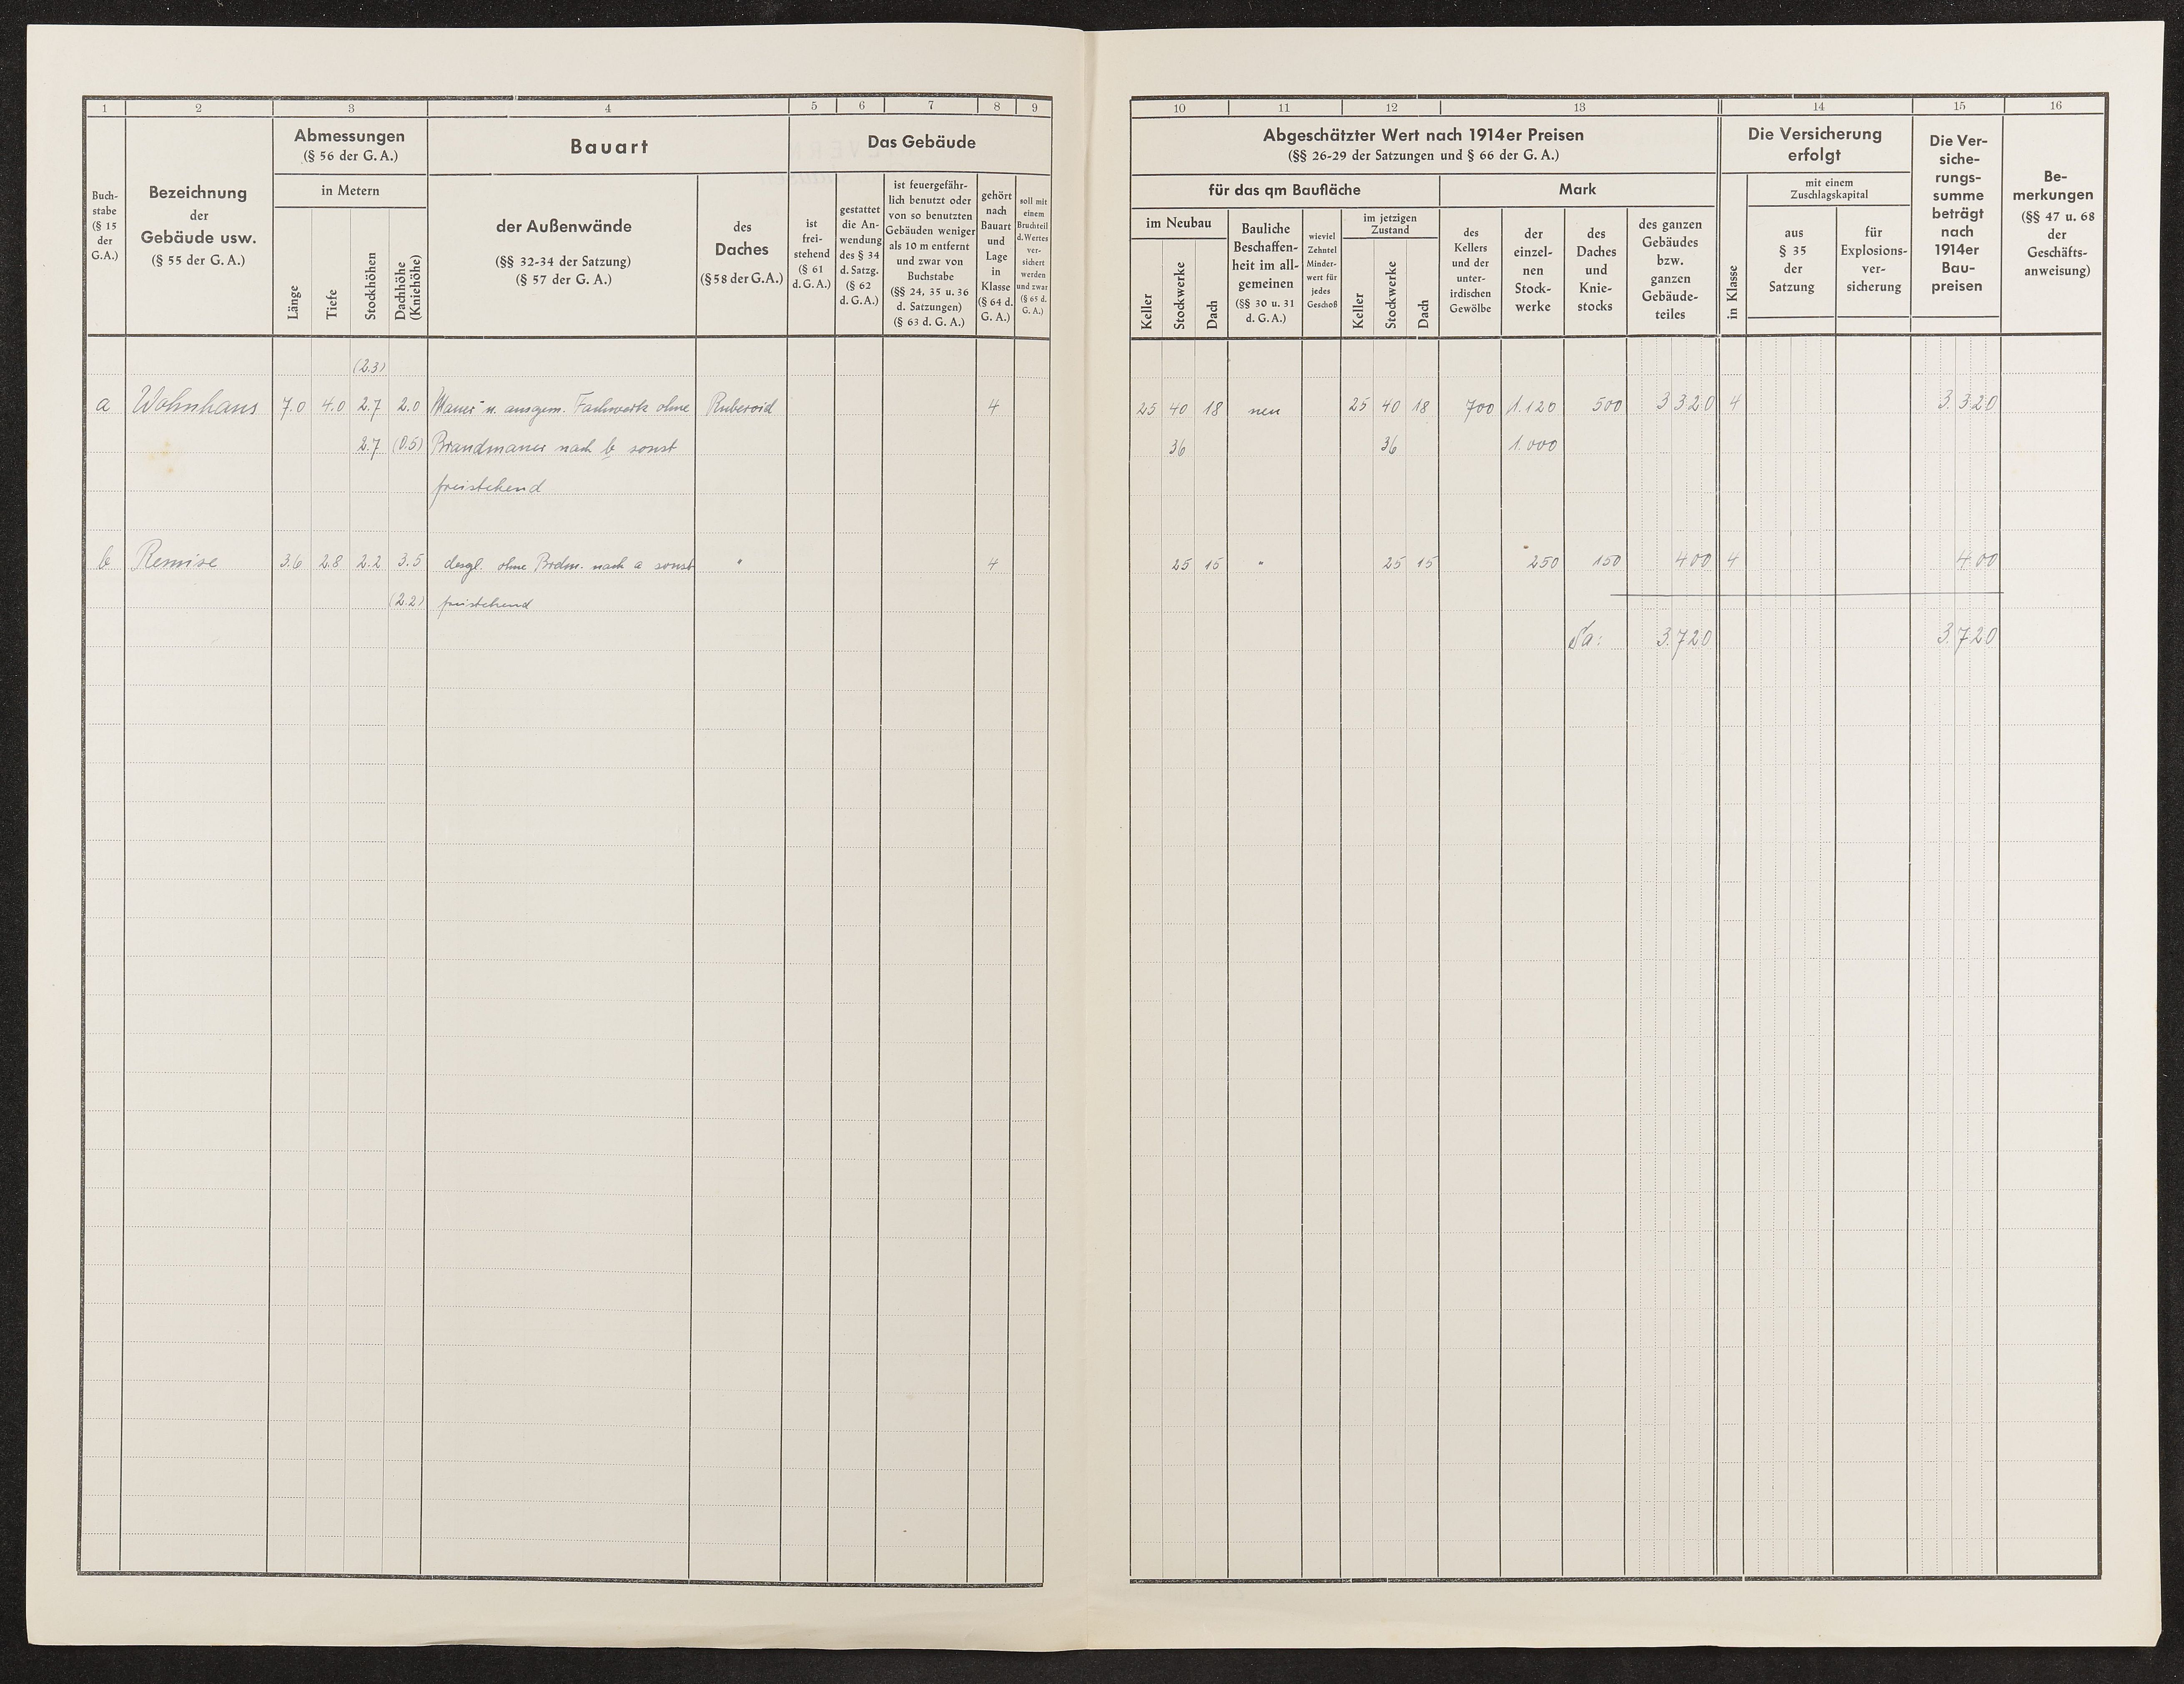 1 2 3 4 5 6 7 8 9
Abmessungen
(§ 56 der G. A.)
in Metern
Bauart
Das Gebäude
Buch-
stabe
(§ 15
der
G.A.)
Bezeichnung
der
Gebäude usw.
(§ 55 der G. A.)
Länge
Tiefe
Stockhöhen
Dachhöhe
(Kniehöhe)
der Außenwände
(§§ 32-34 der Satzung)
(§ 57 der G. A.)
des
Daches
(§ 58 der G.A.)
ist
frei-
stehend
(§ 61
d.G.A.)
gestattet
die An-
wendung
des § 34
d. Satzg.
(§ 62
d.G.A.)
ist feuergefähr-
lich benutzt oder
von so benutzten
Gebäuden weniger
als 10 m entfernt
und zwar von
Buchstabe
(§§ 24, 35 u. 36
d. Satzungen)
(§ 63 d. G. A.)
gehört
nach
Bauart
und
Lage
in
Klasse
(§ 64 d.
G. A.)
soll mit
einem
Bruchteil
d. Wertes
ver-
sichert
werden
und zwar
(§ 65 d.
G. A.)
(2.3)
a Wohnhaus 7.0 4.0 2.7 2.0 Mauer u. ausgem. Fachwerk ohne Ruberoid 4
2.7 (0.5) Brandmauer nach b sonst
freistehend
b Remise 3.6 2.8 2.2 3.5 desgl. ohne Brdm. nach a sonst " 4
(2.2) freistehend
10 11 12 13 14 15 16
Abgeschätzter Wert nach 1914er Preisen
(§§ 26-29 der Satzungen und § 66 der G. A.)
für das qm Baufläche
Mark
im Neubau
Keller
Stockwerke
Dach
Bauliche
Beschaffen-
heit im all-
gemeinen
(§§ 30 u. 31
d. G. A.)
wieviel
Zehntel
Minder-
wert für
jedes
Geschoß
im jetzigen
Zustand
Keller
Stockwerke
Dach
des
Kellers
und der
unter-
irdischen
Gewölbe
der
einzel-
nen
Stock-
werke
des
Daches
und
Knie-
stocks
des ganzen
Gebäudes
bzw.
ganzen
Gebäude-
teiles
Die Versicherung
erfolgt
in Klasse
mit einem
Zuschlagskapital
aus
§ 35
der
Satzung
für
Explosions-
ver-
sicherung
Die Ver-
siche-
rungs-
summe
beträgt
nach
1914er
Bau-
preisen
Be-
merkungen
(§§ 47 u. 68
der
Geschäfts-
anweisung)
25 40 18 neu 25 40 18 700 1.120 500 3320 4 3.320
36 36 1.000
25 15 " 25 15 250 150 400 4 400
Sa: 3.720 3.720